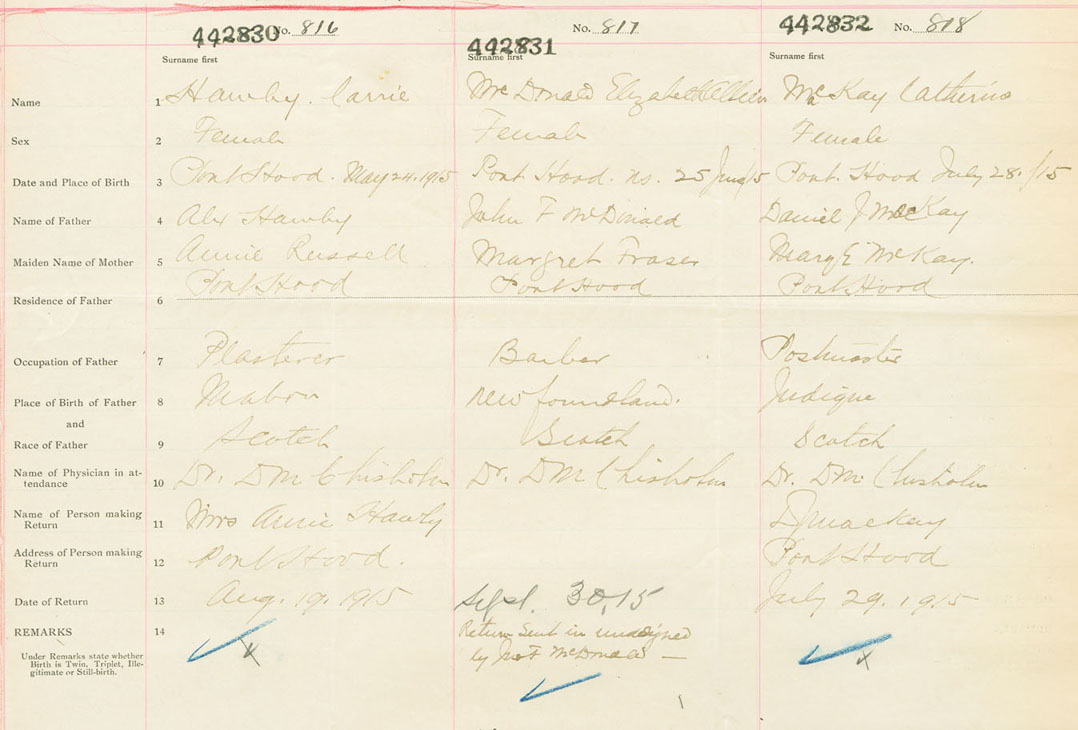 442830 No. 816 442831 No. 817 442832 No. 818
Surname first Surname first Surname first
Name 1 Hawby. Carrie Mc Donald Elizabeth McKay Catherine
Sex 2 Female Female Female
Date and Place of Birth 3 Port Hood. May 24. 1915 Port Hood. ns. 25 /15 Port Hood July 28./15
Name of Father 4 Alex Hawby John F McDonald Daniel J McKay
Maiden Name of Mother 5 Annie Russell Margret Fraser Mary E McKay.
Residence of Father 6 Port Hood Port Hood Port Hood
Occupation of Father 7 Plasterer Barber Postmaster
Place of Birth of Father 8 Mabou Newfoundland. Judique
and
Race of Father 9 Scotch Scotch Scotch
Name of Physician in at-
tendance 10 Dr. D M Chisholm Dr. D M Chisholm Dr. D M. Chisholm
Name of Person making
Return 11 Mrs Annie Hawby D J Mackay
Address of Person making
Return 12 Port Hood. Port Hood
Date of Return 13 Aug. 19. 1915 Sept. 30, 15 July 29. 1915
REMARKS 14 Return sent in unsigned
by F McDonald —
Under Remarks state whether
Birth is Twin, Triplet, Ille-
gitimate or Still-birth.